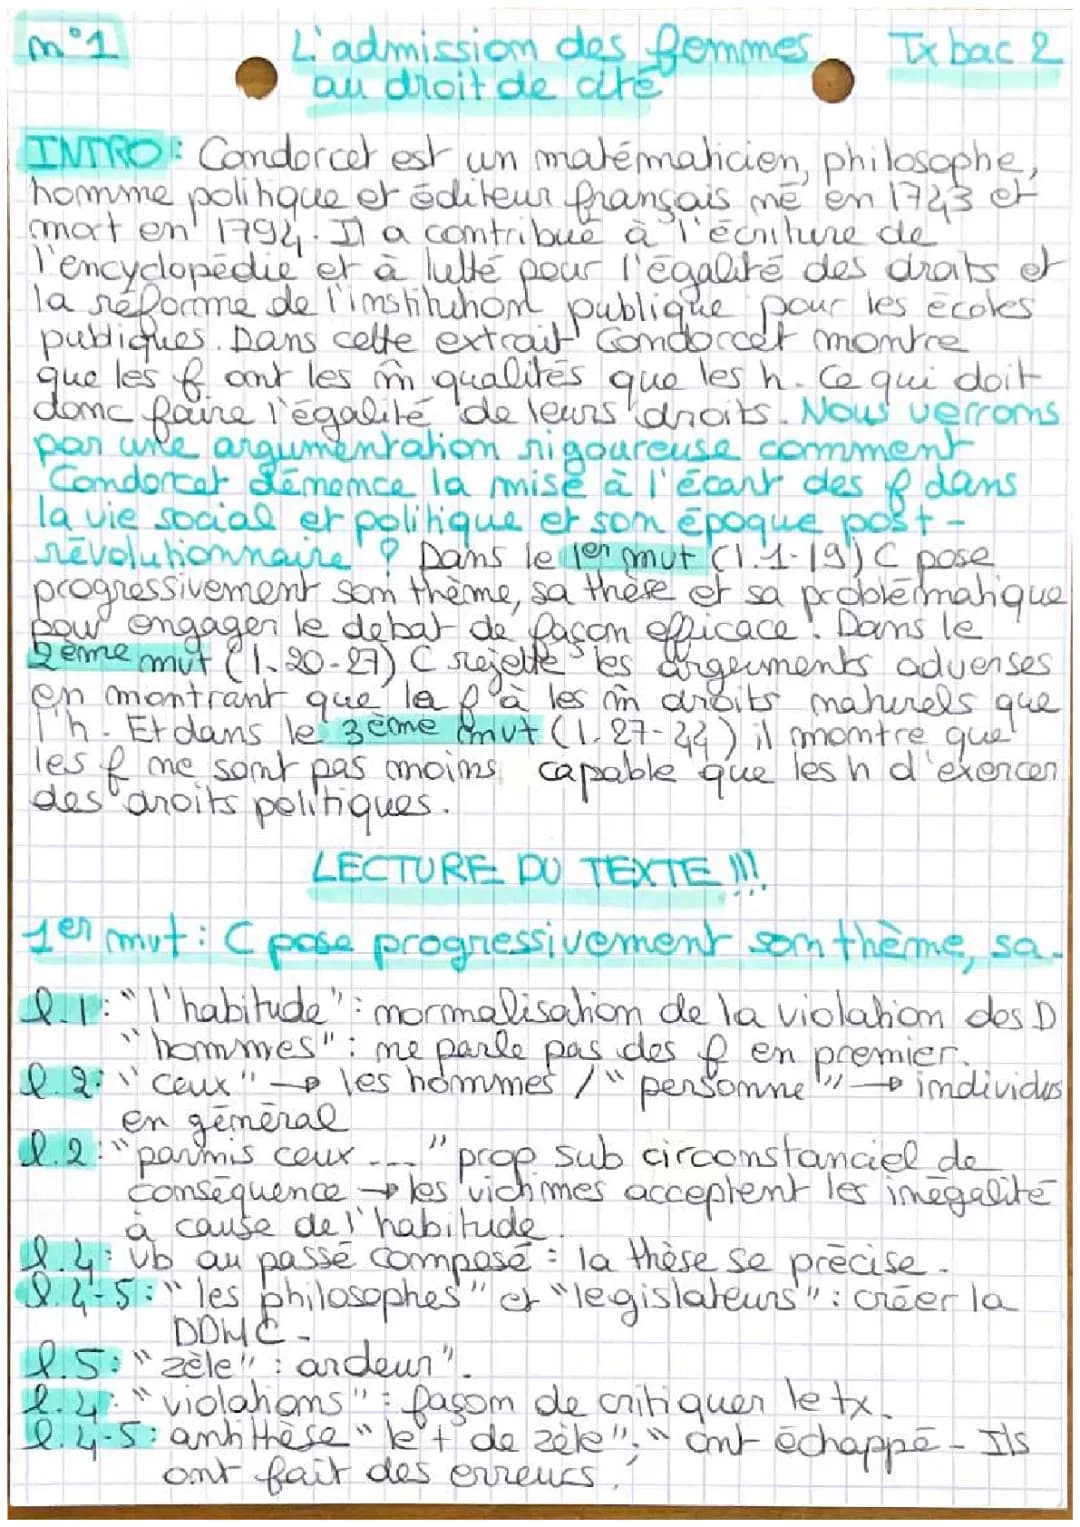 n°1
L'admission des femmes
au droit de cité
Tx bac 2
INTRO: Condorcet est un matématicien, philosophe,
homme politique et éditeur français né en 1743 et
mort en 1794. Il a contribué à l'écriture de
l'encyclopédie et à lutté pour l'égalité des droits et
la réforme de l'instituhon publique pour les écoles
publiques. Dans cette extrait Condorcet montre
que les f ont les m̂ qualités que les h. Ce qui doit
donc faire l'égalité de leurs droits. Nous verrons
par une argumentation rigoureuse comment
Condorcet dénonce la mise à l'écart des f dans
la vie social et politique et son époque post-
révolutionnaire ? Dans le 1er mvt (l.1-19) C pose
progressivement son thème, sa thèse et sa problématique
pour engager le débat de façon efficace. Dans le
2ème mvt (l.20-27) C rejette les arguments adverses
en montrant que la f à les m̂ droits naturels que
l'h. Et dans le 3ème mvt (l.27-44) il montre que
les f ne sont pas moins capable que les h d'exercer
des droits politiques.
LECTURE DU TEXTE !!!
1er mvt: C pose progressivement son thème, sa.
l.1: "l'habitude": normalisation de la violation des D
"hommes": ne parle pas des f en premier.
l.2: "ceux" → les hommes / "personne" → individus
en général
l.2: "parmis ceux ..." prop sub circonstanciel de
conséquence → les victimes acceptent les inégalité
à cause de l'habitude.
l.4: vb au passé composé: la thèse se précise.
l.4-5: "les philosophes" et "legislateurs": créer la
DDHC.
l.5: "zèle": ardeur".
l.4: "violations": façon de critiquer le tx.
l.4-5: antithèse "le + de zèle"; "ont échappé - Ils
ont fait des erreurs.